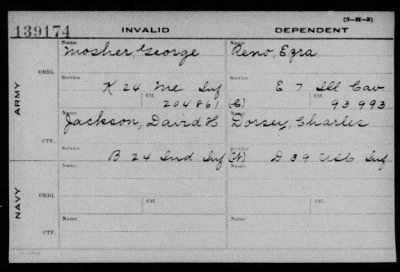 (3-M-5)
139174 INVALID DEPENDENT
Name Name
Mosher, George Reno, Ezra
ORIG.
Service Service
K 24 Me Inf E 7 Ill Cav
Ctf. Ctf.
204861 93993
ARMY
Name Name
Jackson, David H Dorsey, Charles
CTF.
Service Service
B 24 Ind Inf D 39 USC Inf
Name Name
ORIG.
NAVY
Name Name
CTF.